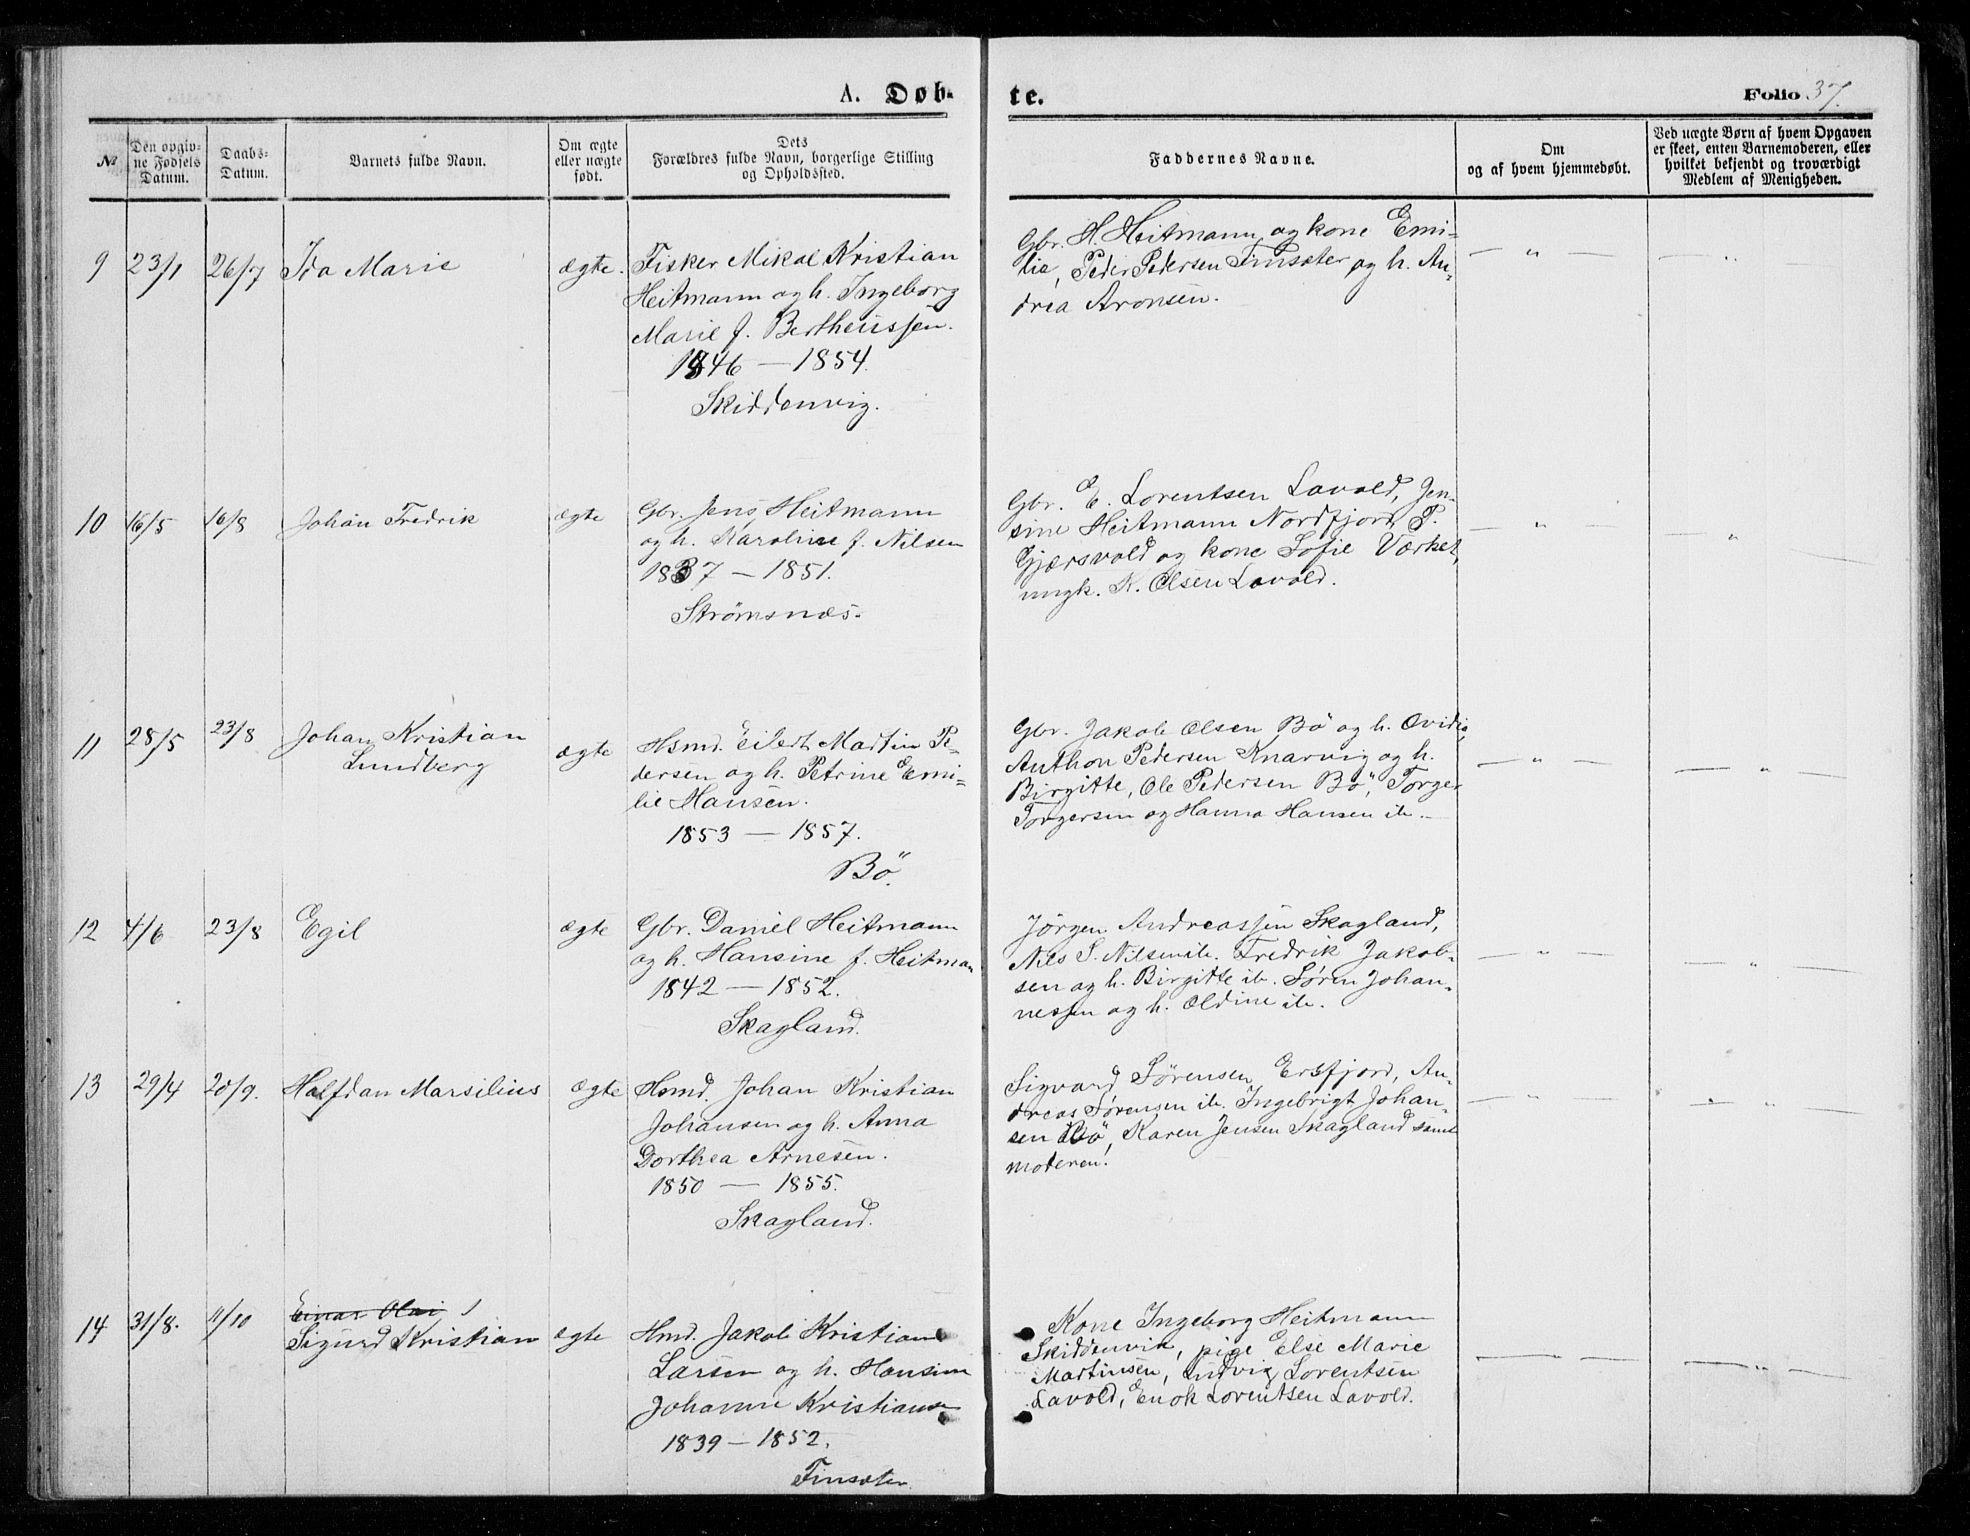 A. Døb-
te.
Folio 37.
№
Den opgiv-
ne Fødsels
Datum.
Daabs-
Datum.
Barnets fulde Navn.
Om ægte
eller uægte
født.
Dets
Forældres fulde Navn, borgerlige Stilling
og Opholdssted.
Faddernes Navne.
Om
og af hvem hjemmedøbt.
Ved uægte Børn af hvem Opgaven
er skeet, enten Barnemoderen, eller
hvilket bekjendt og troværdigt
Medlem af Menigheden.
9 23/1 26/7 Ida Marie ægte.
Fisker Mikal Kristian
Heitmann og h. Ingeborg
Marie f. Bertheussen.
1846 — 1854.
Skiddenvig.
Gbr. H. Heitmann og kone Emi-
lie, Peder Pedersen Finsæter og h. An-
drea Aronsen.
— " — — " —
10 16/5 16/8 Johan Fredrik ægte
Gbr. Jens Heitmann
og h. Karoline f. Nilsen
1837 — 1851.
Strømsnæs.
Gbr. E. Lorentsen Lavold, Jen-
sine Heitmann Nordfjord, P.
Gjærsvold og kone Sofie Værket,
ungk. K. Olsen Lavold.
— " — — " —
11 28/5 23/8 Johan Kristian
Lundberg
ægte
Hsmd. Eilert Martin Pe-
dersen og h. Petrine Emi-
lie Hansen.
1853 — 1857.
Bö.
Gbr. Jakob Olsen Bö og h. Ovidia,
Anthon Pedersen Knarvig og h.
Birgitte, Ole Pedersen Bö, Torger
Torgersen og Hanna Hansen ib.
— " — — " —
12 4/6 23/8 Egil ægte
Gbr. Daniel Heitmann
og h. Hansine f. Heitman
1842 — 1852.
Skagland.
Jørgen Andreassen Skagland,
Nils S. Nilsen ib. Fredrik Jakob-
sen og h. Birgitte ib. Søren Johan-
nessen og h. Oldine ib.
— " — — " —
13 29/4 20/9. Halfdan Marsilius ægte
Hsmd. Johan Kristian
Johansen og h. Anna
Dorthea Arnesen.
1850 — 1855.
Skagland.
Sigvard Sørensen Ersfjord, An-
dreas Sørensen ib. Ingebrigt Johan-
sen Bö, Karen Jensen Skagland samt
moderen.
— " — — " —
14 31/8. 11/10 Einar Olai
Sigurd Kristian
ægte
Hmd. Jakob Kristian
Larsen og h. Hansine
Johanne Kristianse
1839 — 1852.
Finsæter.
Kone Ingeborg Heitmann
Skiddenvik, pige Else Marie
Martinsen, Ludvig Lorentsen
Lavold, Enok Lorentsen Lavold.
— " — — " —